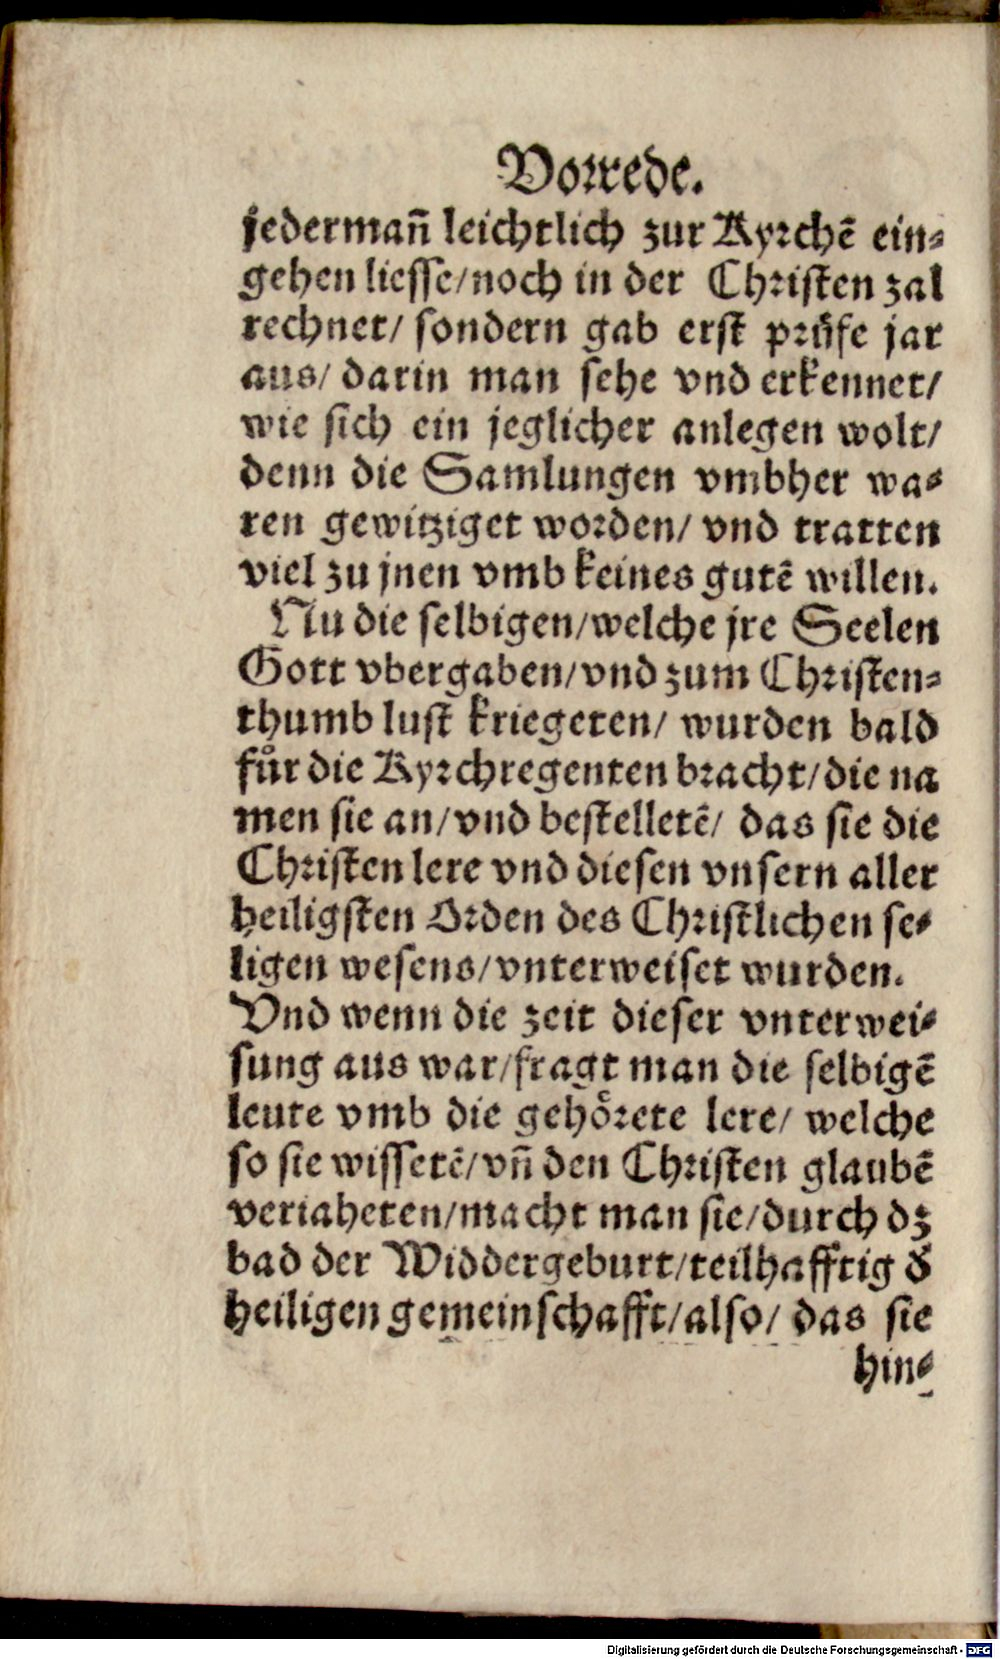 Vorrede.
jedermañ leichtlich zur Kyrchē ein-
gehen liesse/noch in der Christen zal
rechnet/ sondern gab erst prüfe jar
aus/ darin man sehe vnd erkennet/
wie sich ein jeglicher anlegen wolt/
denn die Samlungen vmbher wa-
ren gewitziget worden/ vnd tratten
viel zu jnen vmb keines gutē willen.
Nu die selbigen/welche jre Seelen
Gott vbergaben/vnd zum Christen-
thumb lust kriegeten/ wurden bald
fůr die Kyrchregenten bracht/die na
men sie an/vnd bestelletē/ das sie die
Christen lere vnd diesen vnsern aller
heiligsten Orden des Christlichen se-
ligen wesens/vnterweiset wurden.
Vnd wenn die zeit dieser vnterwei-
sung aus war/fragt man die selbigē
leute vmb die gehörete lere/ welche
so sie wissetē/vñ den Christen glaubē
veriaheten/macht man sie/durch dz
bad der Widdergeburt/teilhafftig d̕
heiligen gemeinschafft/also/ das sie
hin-
Digitalisierung gefördert durch die Deutsche Forschungsgemeinschaft - DFG